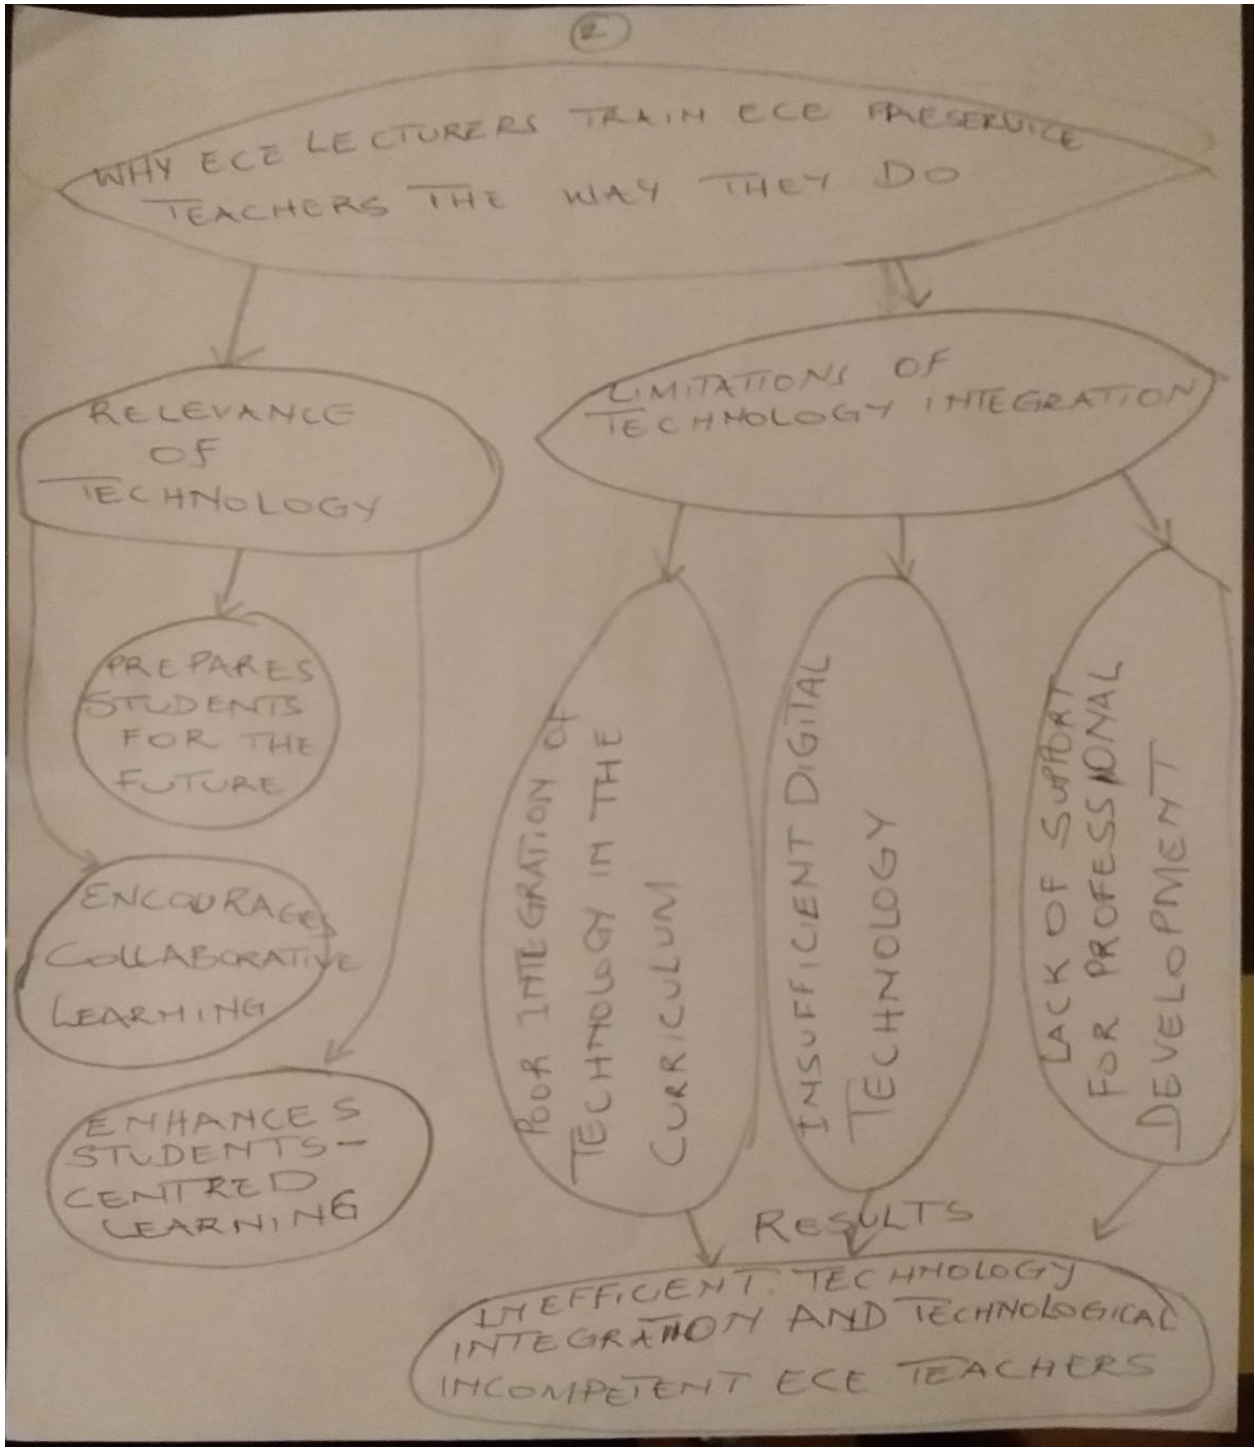 2
WHY ECE LECTURERS TRAIN ECE PRESERVICE
TEACHERS THE WAY THEY DO
RELEVANCE
OF
TECHNOLOGY
LIMITATIONS OF
TECHNOLOGY INTEGRATION
PREPARES
STUDENTS
FOR THE
FUTURE
ENCOURAGES
COLLABORATIVE
LEARNING
ENHANCES
STUDENTS-
CENTRED
LEARNING
POOR INTEGRATION OF
TECHNOLOGY IN THE
CURRICULUM
INSUFFICIENT DIGITAL
TECHNOLOGY
LACK OF SUPPORT
FOR PROFESSIONAL
DEVELOPMENT
RESULTS
INEFFICIENT TECHNOLOGY
INTEGRATION AND TECHNOLOGICAL
INCOMPETENT ECE TEACHERS